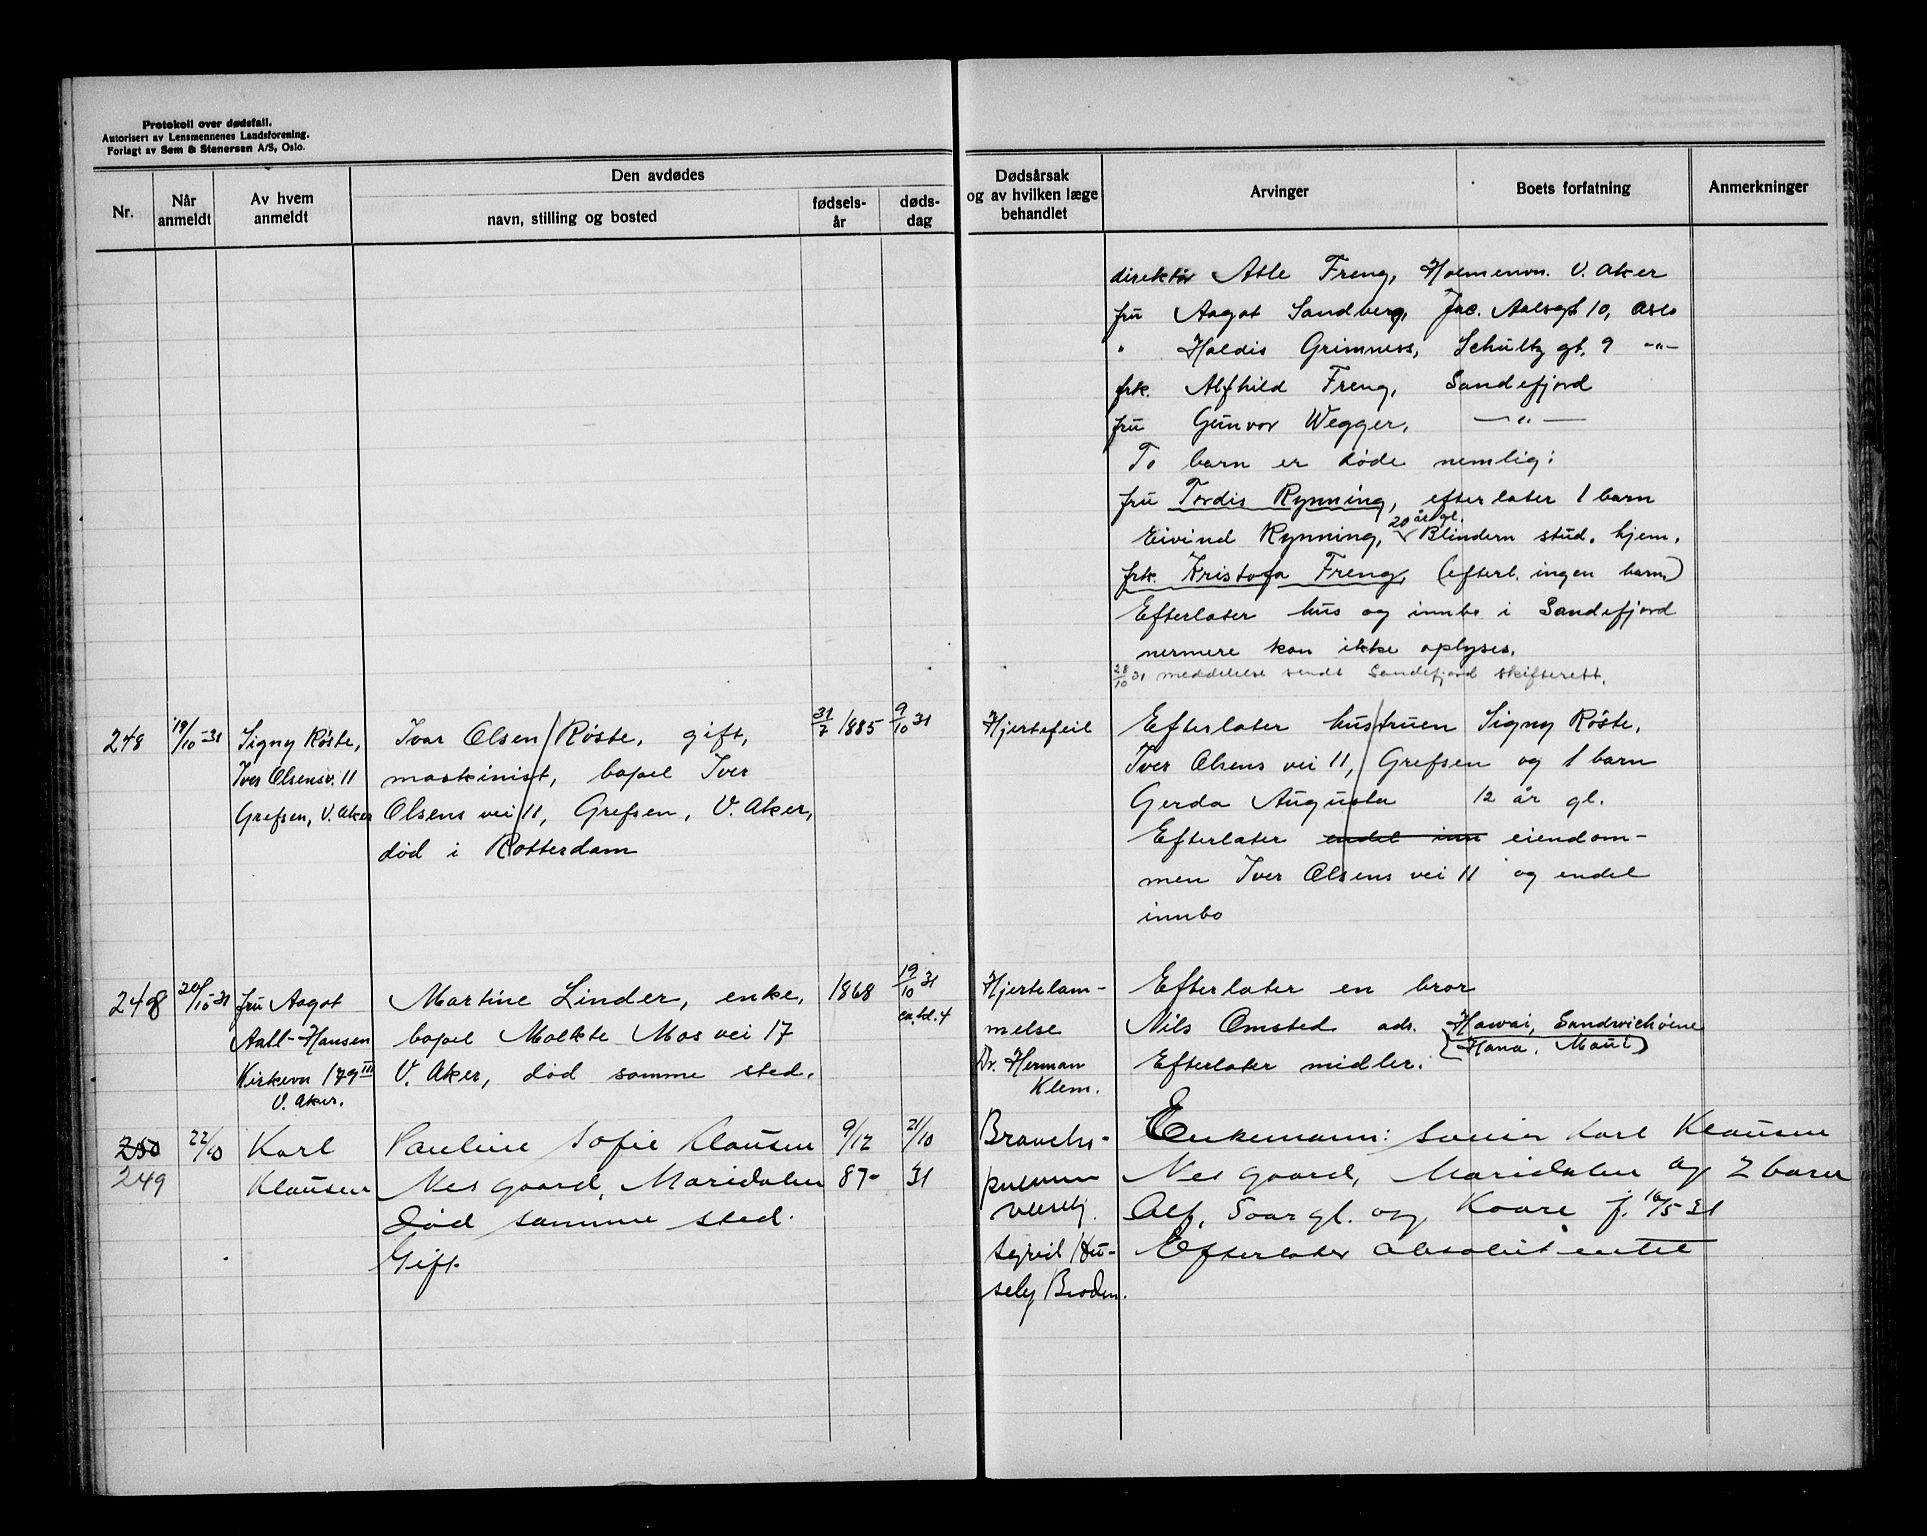 Protokoll over dødsfall.
Autorisert av Lensmennenes Landsforening.
Forlagt av Sem & Stenersen A/S, Oslo.
Nr.
Når anmeldt
Av hvem anmeldt
Den avdødes
navn, stilling og bosted
fødselsår
dødsdag
Dødsårsak og av hvilken læge behandlet
Arvinger
Boets forfatning
Anmerkninger
direktør Atle Freng, Holmenvn. V. Aker
fru Aagot Sandberg, Jac. Aalsgt 10, Oslo
" Haldis Grimness, Schultz gt. 9 -"-
frk. Alfhild Freng, Sandefjord
fru Gunvor Wegger, -"-
To barn er døde nemlig:
fru Tordis Rynning, efterlater 1 barn
Eivind Rynning, 20 år gl. Blindern stud. hjem.
frk. Kristofa Freng, (efterl. ingen barn)
Efterlater hus og innbo i Sandefjord
nermere kan ikke oplyses.
28/10 31 meddelelse sendt Sandefjord skifterett.
248
19/10-31
Signy Røste,
Iver Olsensv. 11
Grefsen, V. Aker
Ivar Olsen Røste, gift,
maskinist, bopel Iver
Olsens vei 11, Grefsen, V. Aker,
død i Rotterdam
31/7 1885
9/10 31
Hjertefeil
Efterlater hustruen Signy Røste,
Iver Olsens vei 11, Grefsen og 1 barn
Gerda Augusta 12 år gl.
Efterlater endel inn eiendom-
men Iver Olsens vei 11 og endel
innbo
248
20/10-31
fru Aagot
Aall-Hansen
Kirkevn 179 III
V. Aker.
Martine Linder, enke,
bopel Moltke Moes vei 17
V. Aker, død samme sted.
1868
19/10 31
ca. kl. 4
Hjertelam-
melse
Dr. Herman
Klem.
Efterlater en bror
Nils Omsted adr. Hawai, Sandwichøene
(Hana, Maui)
Efterlater midler.
250
249
22/10
Karl
Klausen
Pauline Sofie Klausen
Nesgaard, Maridalen
død samme sted.
Gift.
9/12
87-
21/10
31
Enkemann: Karl Klausen
Nesgaard, Maridalen og 2 barn
Alf, 5 aar gl. og Kaare f. 16/5 31
Efterlater absolut intet